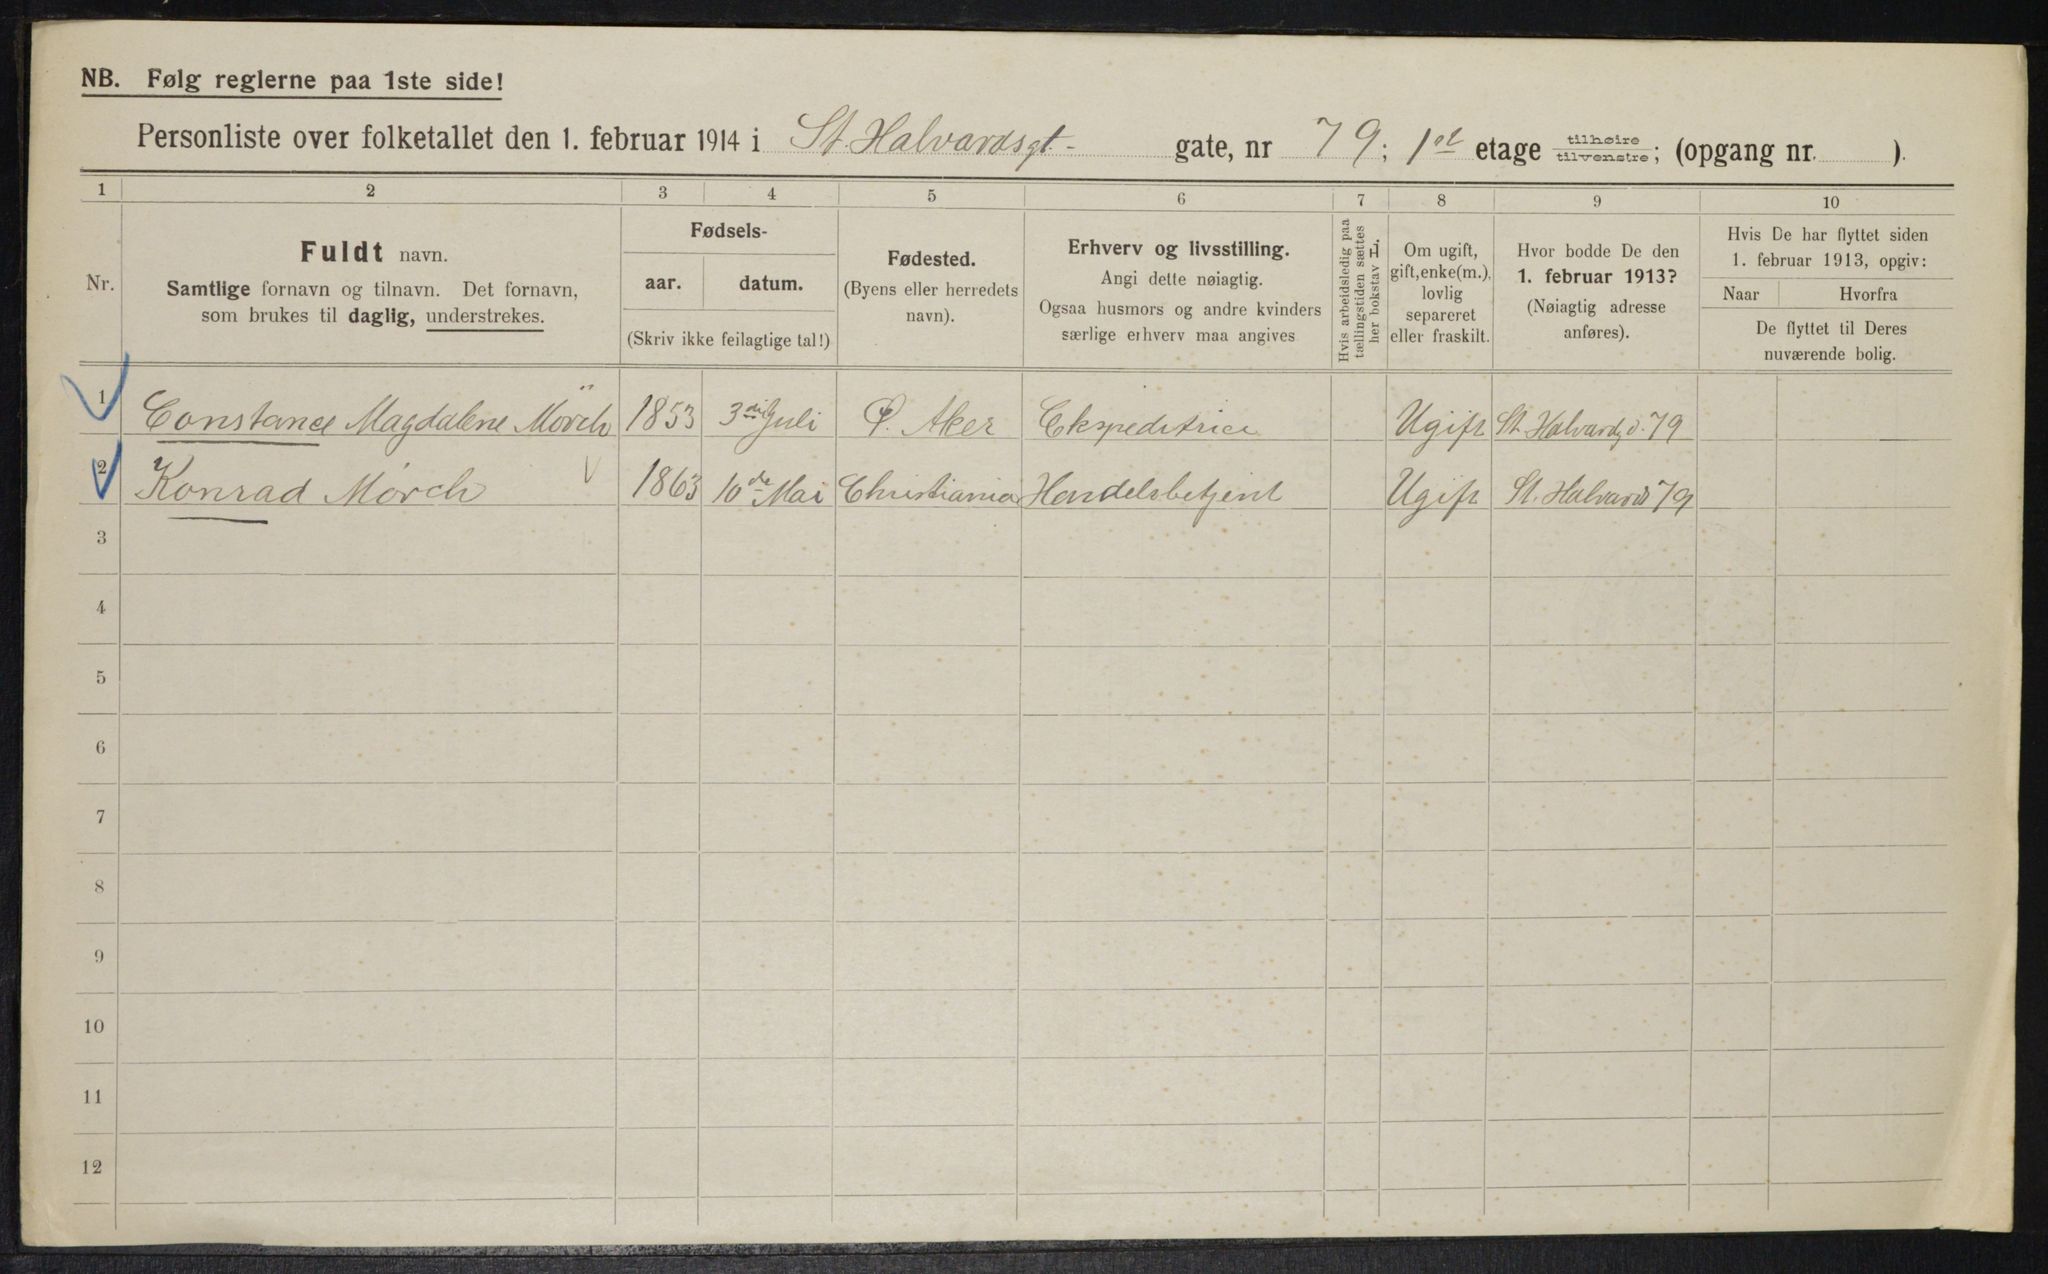 NB. Følg reglerne paa 1ste side!
Personliste over folketallet den 1. februar 1914 i St. Halvardsgt. - gate, nr 79; 1st etage tilhøire/tilvenstre; (opgang nr. ).
1 2 3 4 5 6 7 8 9 10
Nr.
Fuldt navn.
Samtlige fornavn og tilnavn. Det fornavn,
som brukes til daglig, understrekes.
Fødsels-
aar. datum.
(Skriv ikke feilagtige tal!)
Fødested.
(Byens eller herredets
navn).
Erhverv og livsstilling.
Angi dette nøiagtig.
Ogsaa husmors og andre kvinders
særlige erhverv maa angives
Hvis arbeidsledig paa
tællingstiden sættes
her bokstav L.
Om ugift,
gift, enke(m.),
lovlig
separeret
eller fraskilt.
Hvor bodde De den
1. februar 1913?
(Nøiagtig adresse
anføres).
Hvis De har flyttet siden
1. februar 1913, opgiv:
Naar Hvorfra
De flyttet til Deres
nuværende bolig.
1 Constance Magdalene Mörch 1853 3die Juli Ø. Aker Ekspeditrice Ugift St. Halvardg. 79
2 Konrad Mörch 1863 10de Mai Christiania Handelsbetjent Ugift St. Halvards 79
3
4
5
6
7
8
9
10
11
12